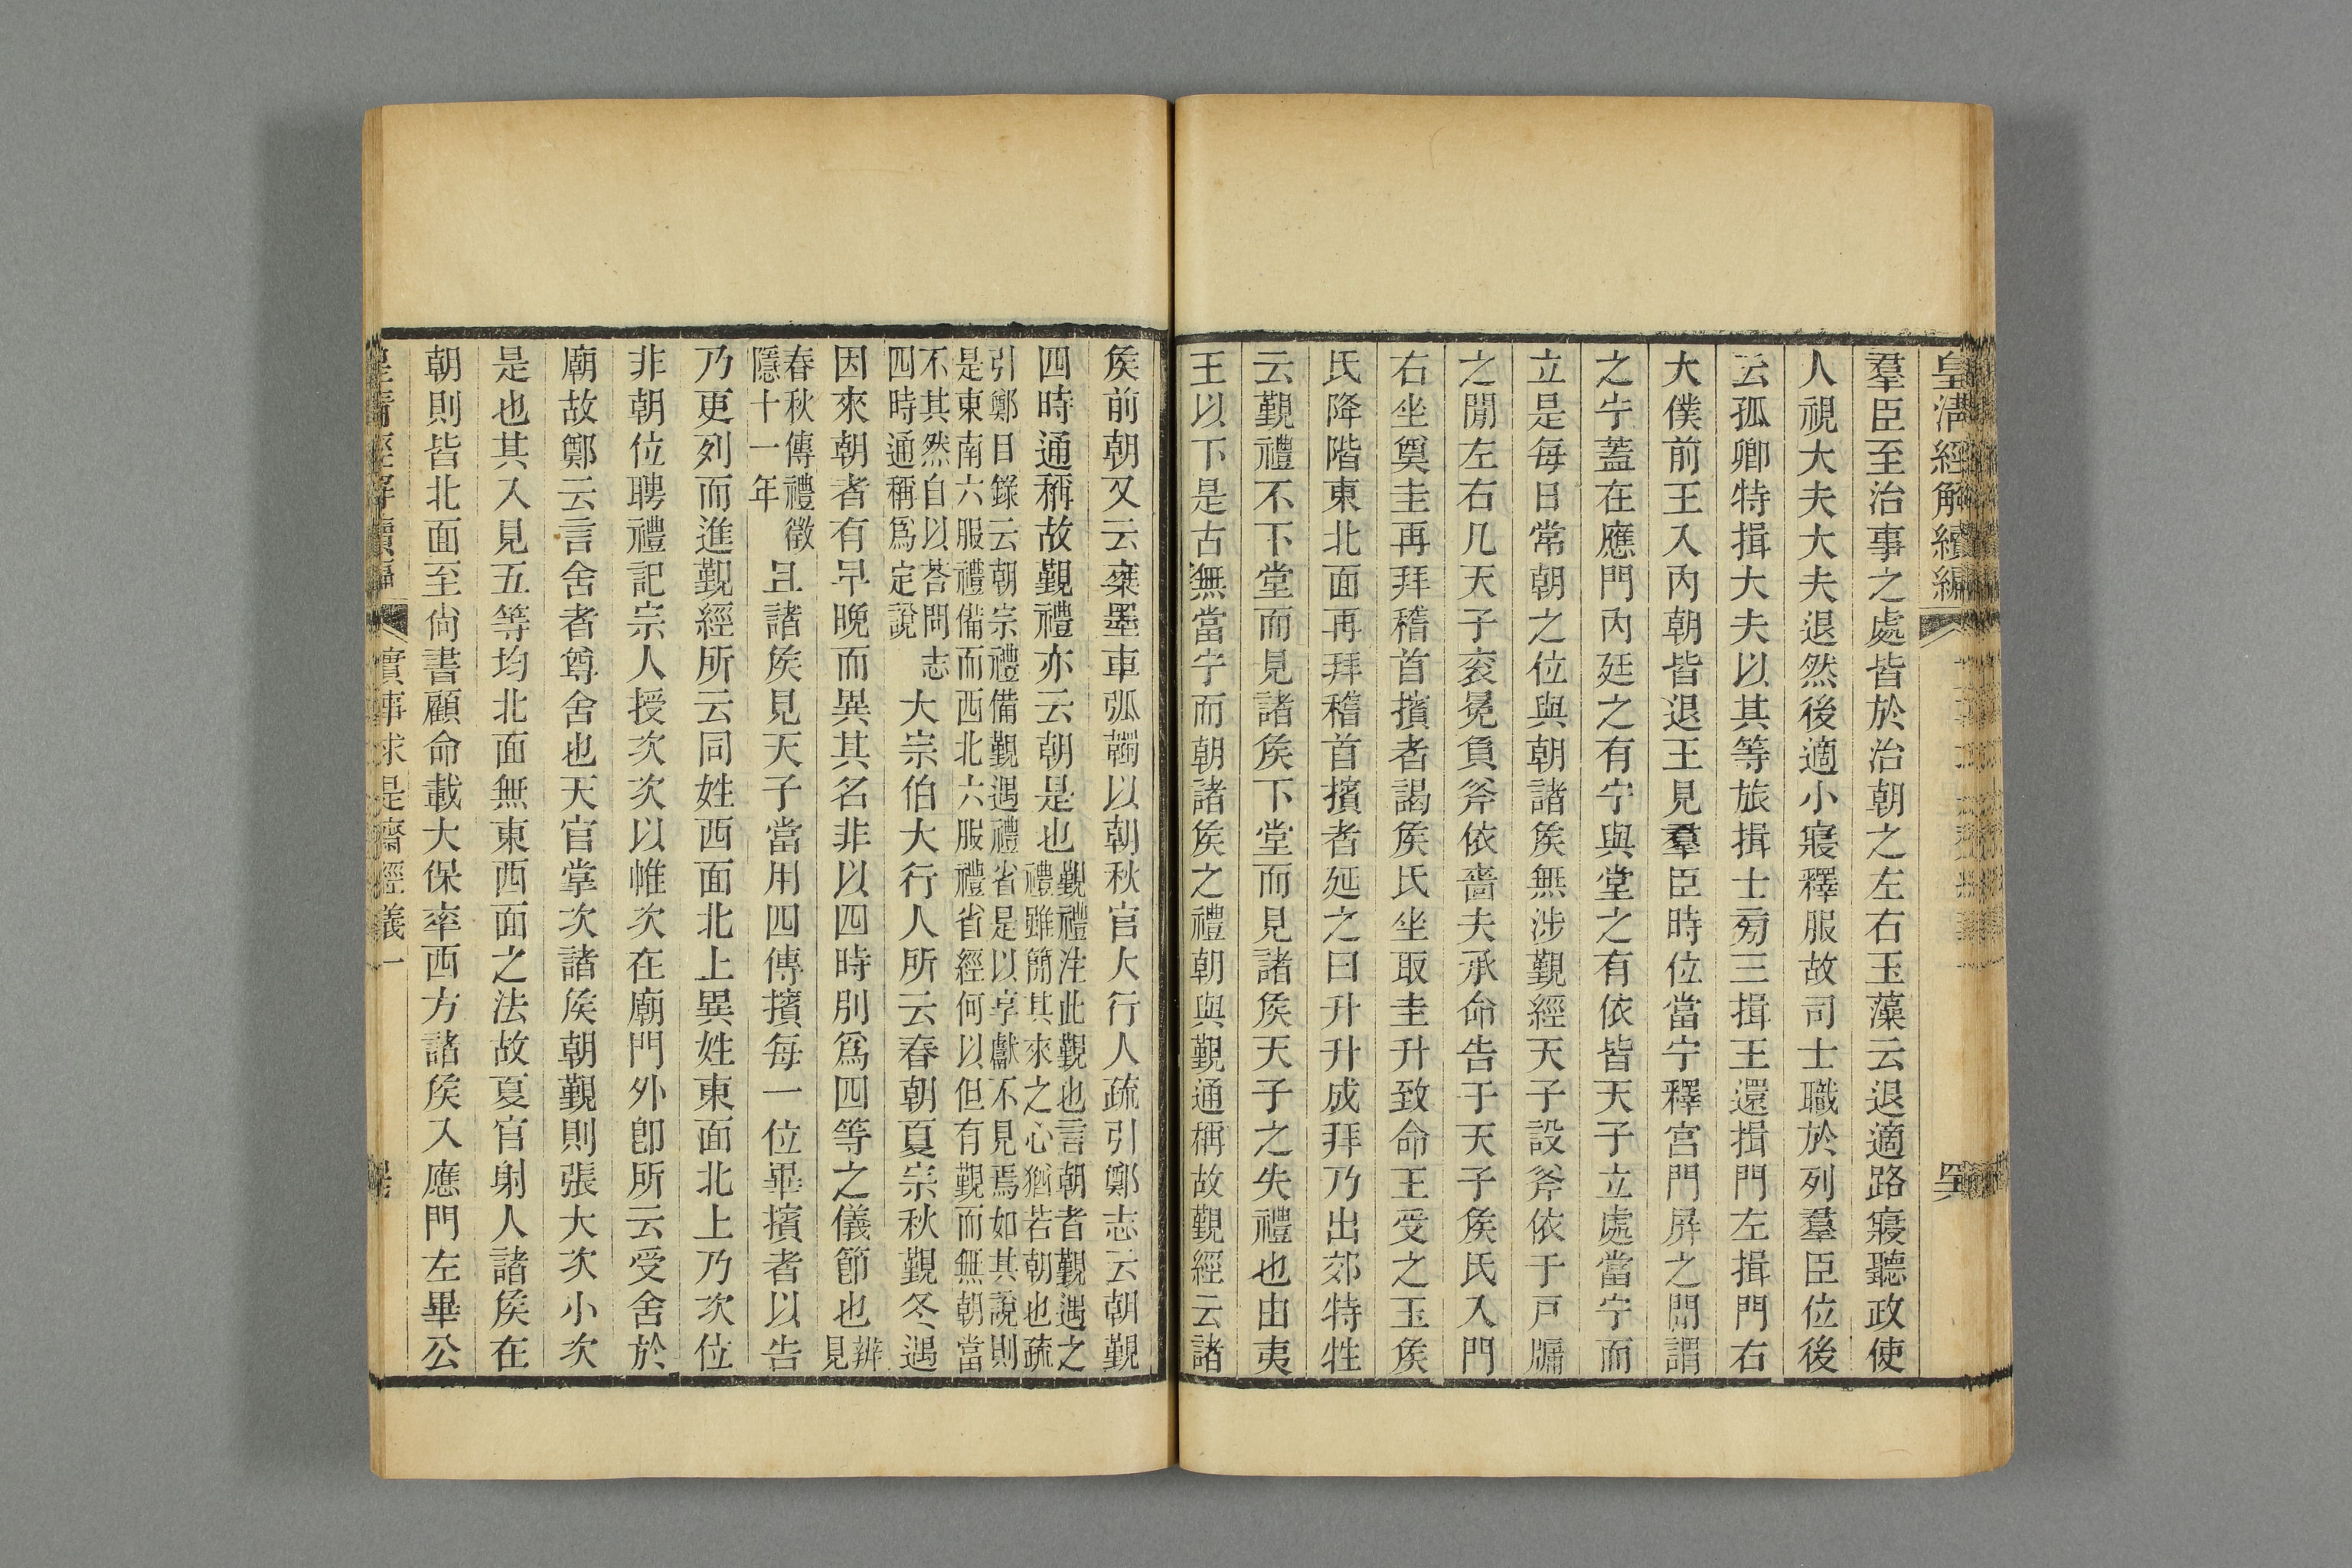 皇清經解續編
羣臣至治事之處皆於治朝之左右玉藻云退適路寢聽政使
人視大夫大夫退然後適小寢釋服故司士職於列羣臣位後
云孤卿特揖大夫以其等旅揖士旁三揖王還揖門左揖門右
大僕前王入內朝皆退王見羣臣時位當宁釋宮門屏之閒謂
之宁蓋在應門內廷之有宁與堂之有依皆天子立處當宁而
立是每日常朝之位與朝諸矦無涉覲經天子設斧依于戸牖
之閒左右几天子衮冕負斧依嗇夫承命告于天子矦氏入門
右坐奠圭再拜稽首擯者謁矦氏坐取圭升致命王受之玉矦
氏降階東北面再拜稽首擯者延之曰升升成拜乃出郊特牲
云覲禮不下堂而見諸矦下堂而見諸矦天子之失禮也由夷
王以下是古無當宁而朝諸矦之禮朝與覲通稱故覲經云諸
矦前朝又云椉墨車弧韣以朝秋官大行人疏引鄭志云朝覲
四時通稱故覲禮亦云朝是也覲禮注此覲也言朝者覲遇之
禮雖簡其來之心猶若朝也疏
引鄭目錄云朝宗禮備覲遇禮省是以享獻不見焉如其說則
是東南六服禮備而西北六服禮省經何以但有覲而無朝當
不其然自以荅問志
四時通稱爲定說
大宗伯大行人所云春朝夏宗秋覲冬遇
因來朝者有早晚而異其名非以四時別爲四等之儀節也辨
見
春秋傳禮徵
隱十一年
且諸矦見天子當用四傳擯每一位畢擯者以告
乃更列而進覲經所云同姓西面北上異姓東面北上乃次位
非朝位聘禮記宗人授次次以帷次在廟門外卽所云受舍於
廟故鄭云言舍者尊舍也天官掌次諸矦朝覲則張大次小次
是也其入見五等均北面無東西面之法故夏官射人諸矦在
朝則皆北面至尙書顧命載大保率西方諸矦入應門左畢公
皇清經解續編
實事求是齋經義一